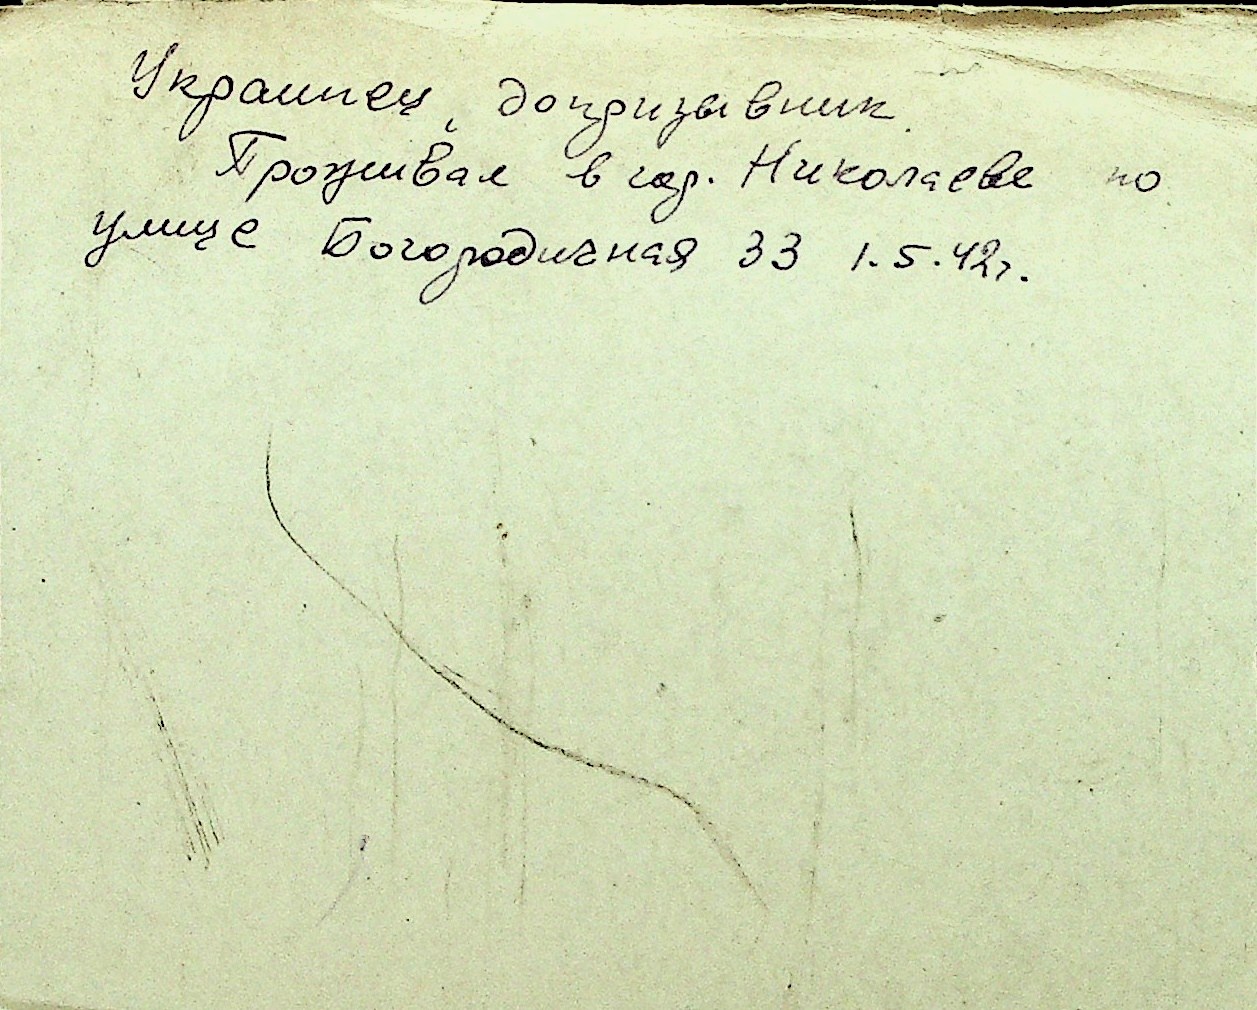 Украинец, допризывник.
Проживал в гор. Николаеве по
улице Богородичная 33 1.5.42г.